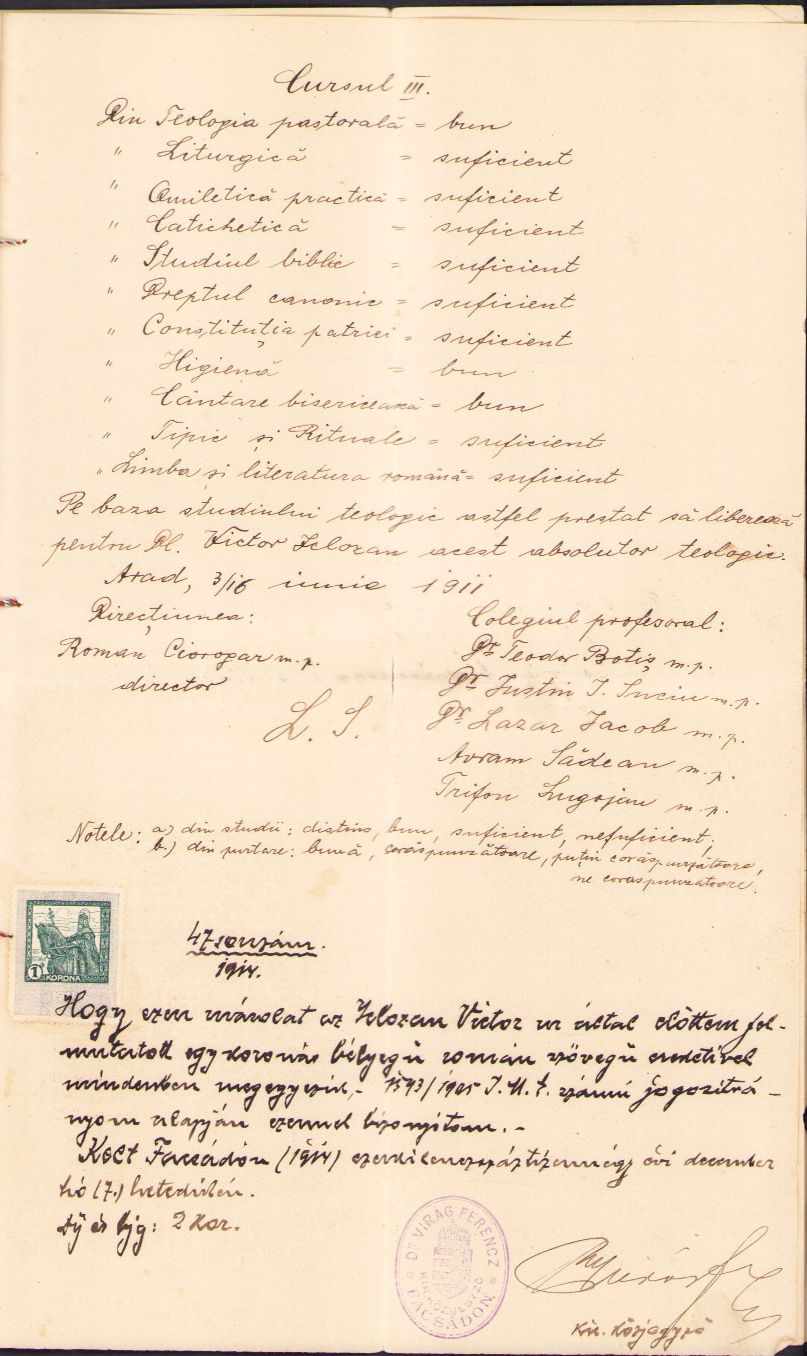 Cursul III.
Din Teologia pastorală = bun
" Liturgică = suficient
" Omiletică practică = suficient
" Catichetică = suficient
" Studiul biblic = suficient
" Dreptul canonic = suficient
" Constituția patriei = suficient
" Higienă = bun
" Cântare bisericească = bun
" Tipic și Rituale = suficient
" Limba și literatura română = suficient
Pe baza studiului teologic astfel prestat să liberează
pentru Dl. Victor Iclozan acest absolutor teologic.
Arad, 3/16 iunie 1911
Direcțiunea:
Roman Ciorogar m. p.
director
L. S.
Colegiul profesoral:
Dr. Teodor Botiș m. p.
Dr. Iustin I. Suciu m. p.
Dr. Lazar Iacob m. p.
Avram Sădean m. p.
Trifon Lugojan m. p.
Notele: a.) din studii: distins, bun, suficient, nesuficient;
b.) din purtare: bună, corăspunzătoare, puțin corăspunzătoare,
ne corăspunzătoare.
1 KORONA
47 szám.
1914.
Hogy ezen másolat az Iclozan Victor ur által előttem fel-
mutatott egy koronás bélyegű román szövegű eredetivel
mindenben megegyezik, - 1593/1905 I. M. számú jogosítvá-
nyom alapján ezennel bizonyitom. -
Kelt Facsádon (1914) ezerkilencszáztizennégy évi december
hó (7.) hetedikén.
Dij és bjg: 2 kor.
Dr VIRAG FERENCZ
KIR. KÖZJEGYZŐ
FACSÁDON
kir. közjegyző